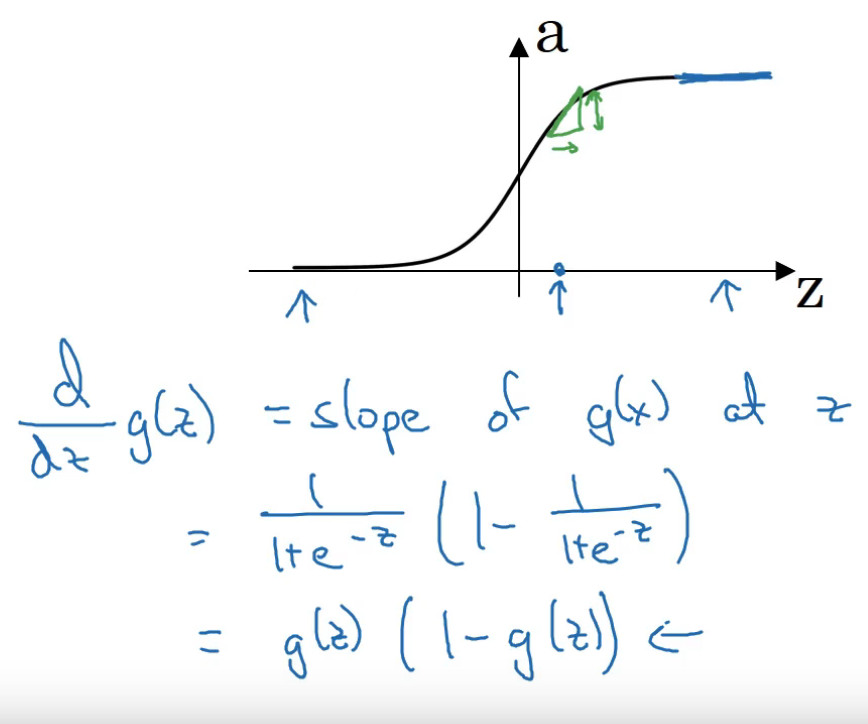 a
z
d/dz g(z) = slope of g(x) at z
= 1/(1+e^-z) (1 - 1/(1+e^-z))
= g(z) (1-g(z)) ←